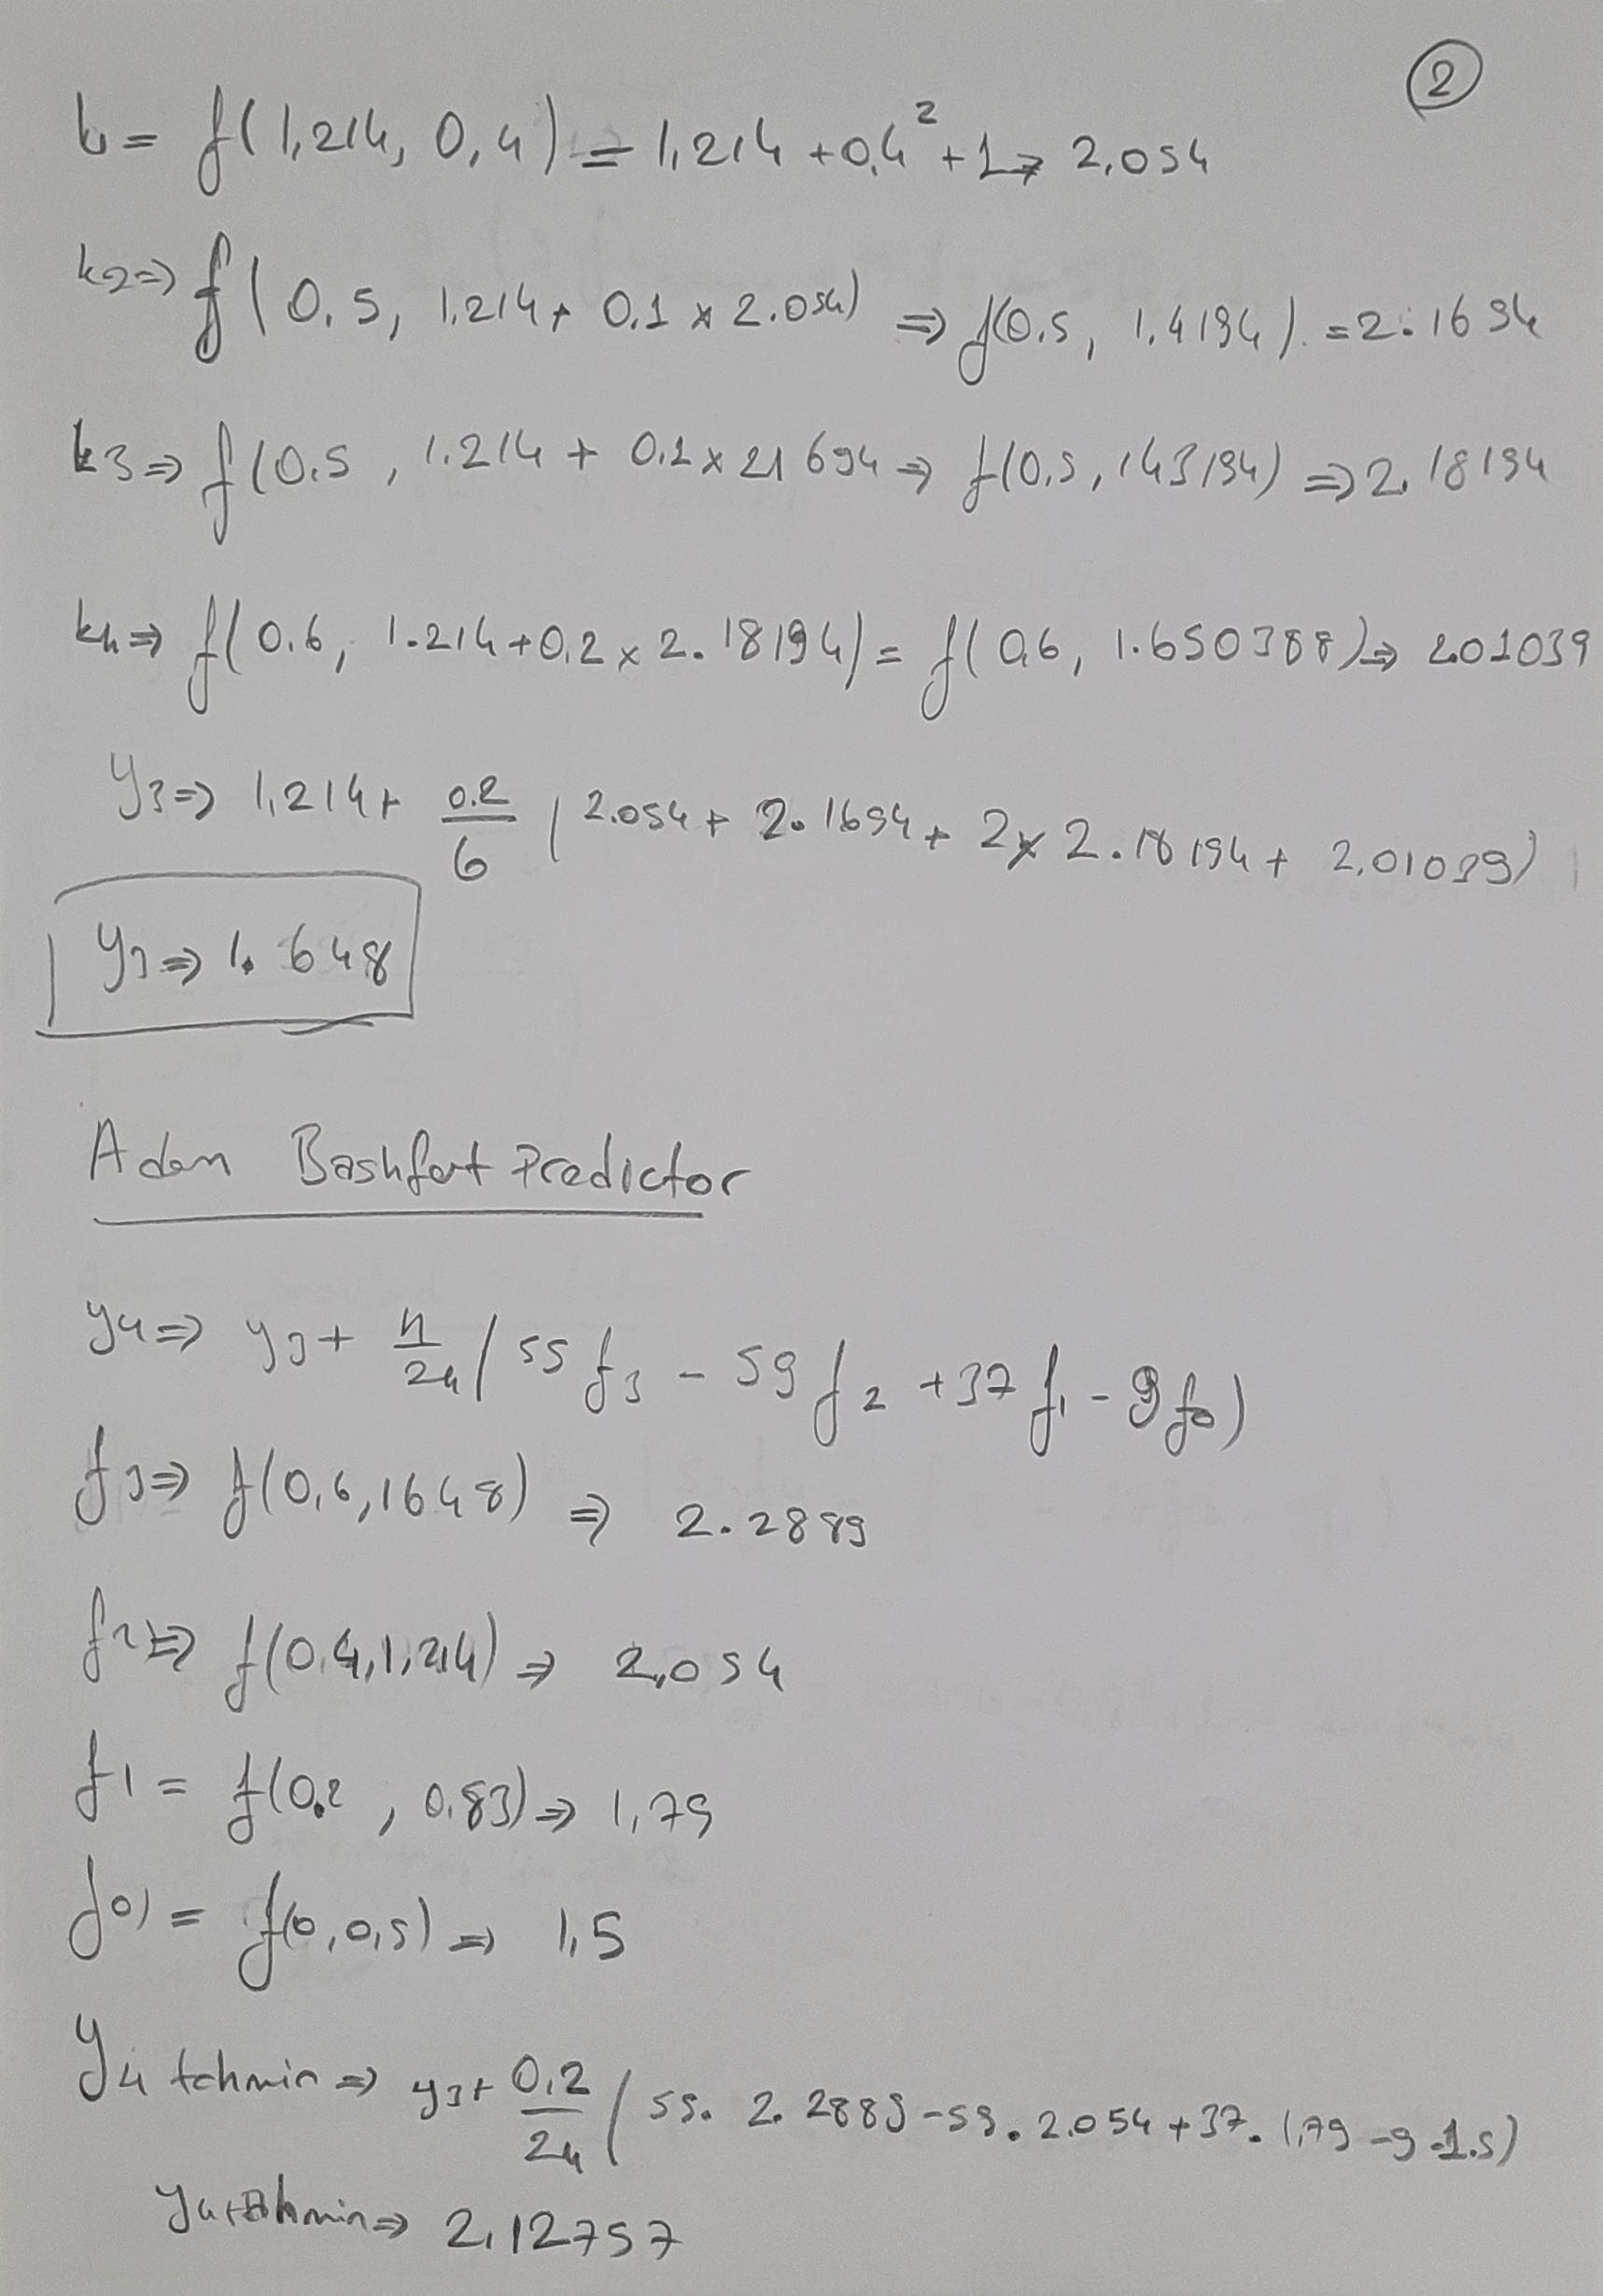 ②
k₁ = f(1,214, 0,4) = 1,214 + 0,4² + 1 → 2,054
k₂ ⇒ f(0.5, 1.214 + 0.1 x 2.054) ⇒ f(0.5, 1.4194) = 2.1694
k3 ⇒ f(0.5, 1.214 + 0.1 x 21694 ⇒ f(0,5, 143194) ⇒ 2,18194
k4 ⇒ f(0.6, 1.214 + 0,2 x 2.18194) = f(0,6, 1.650388) ⇒ 201039
y3 ⇒ 1,214 + 0.2/6 (2.054 + 2.1694 + 2x2.18194 + 2,01039)
y3 ⇒ 1.648
Adam Bashfort Predictor
y4 ⇒ y3 + h/24 (55 f3 - 59 f2 + 37 f1 - 9 f0)
f3 ⇒ f(0,6, 1648) ⇒ 2.2889
f2 ⇒ f(0.4, 1,214) ⇒ 2,054
f1 = f(0.2, 0.83) ⇒ 1,79
f0) = f(0, 0,5) ⇒ 1,5
y4 tahmin ⇒ y3 + 0,2/24 (55. 2.2889 - 59. 2.054 + 37. 1,79 - 9.1.5)
y4 tahmin ⇒ 2,12757